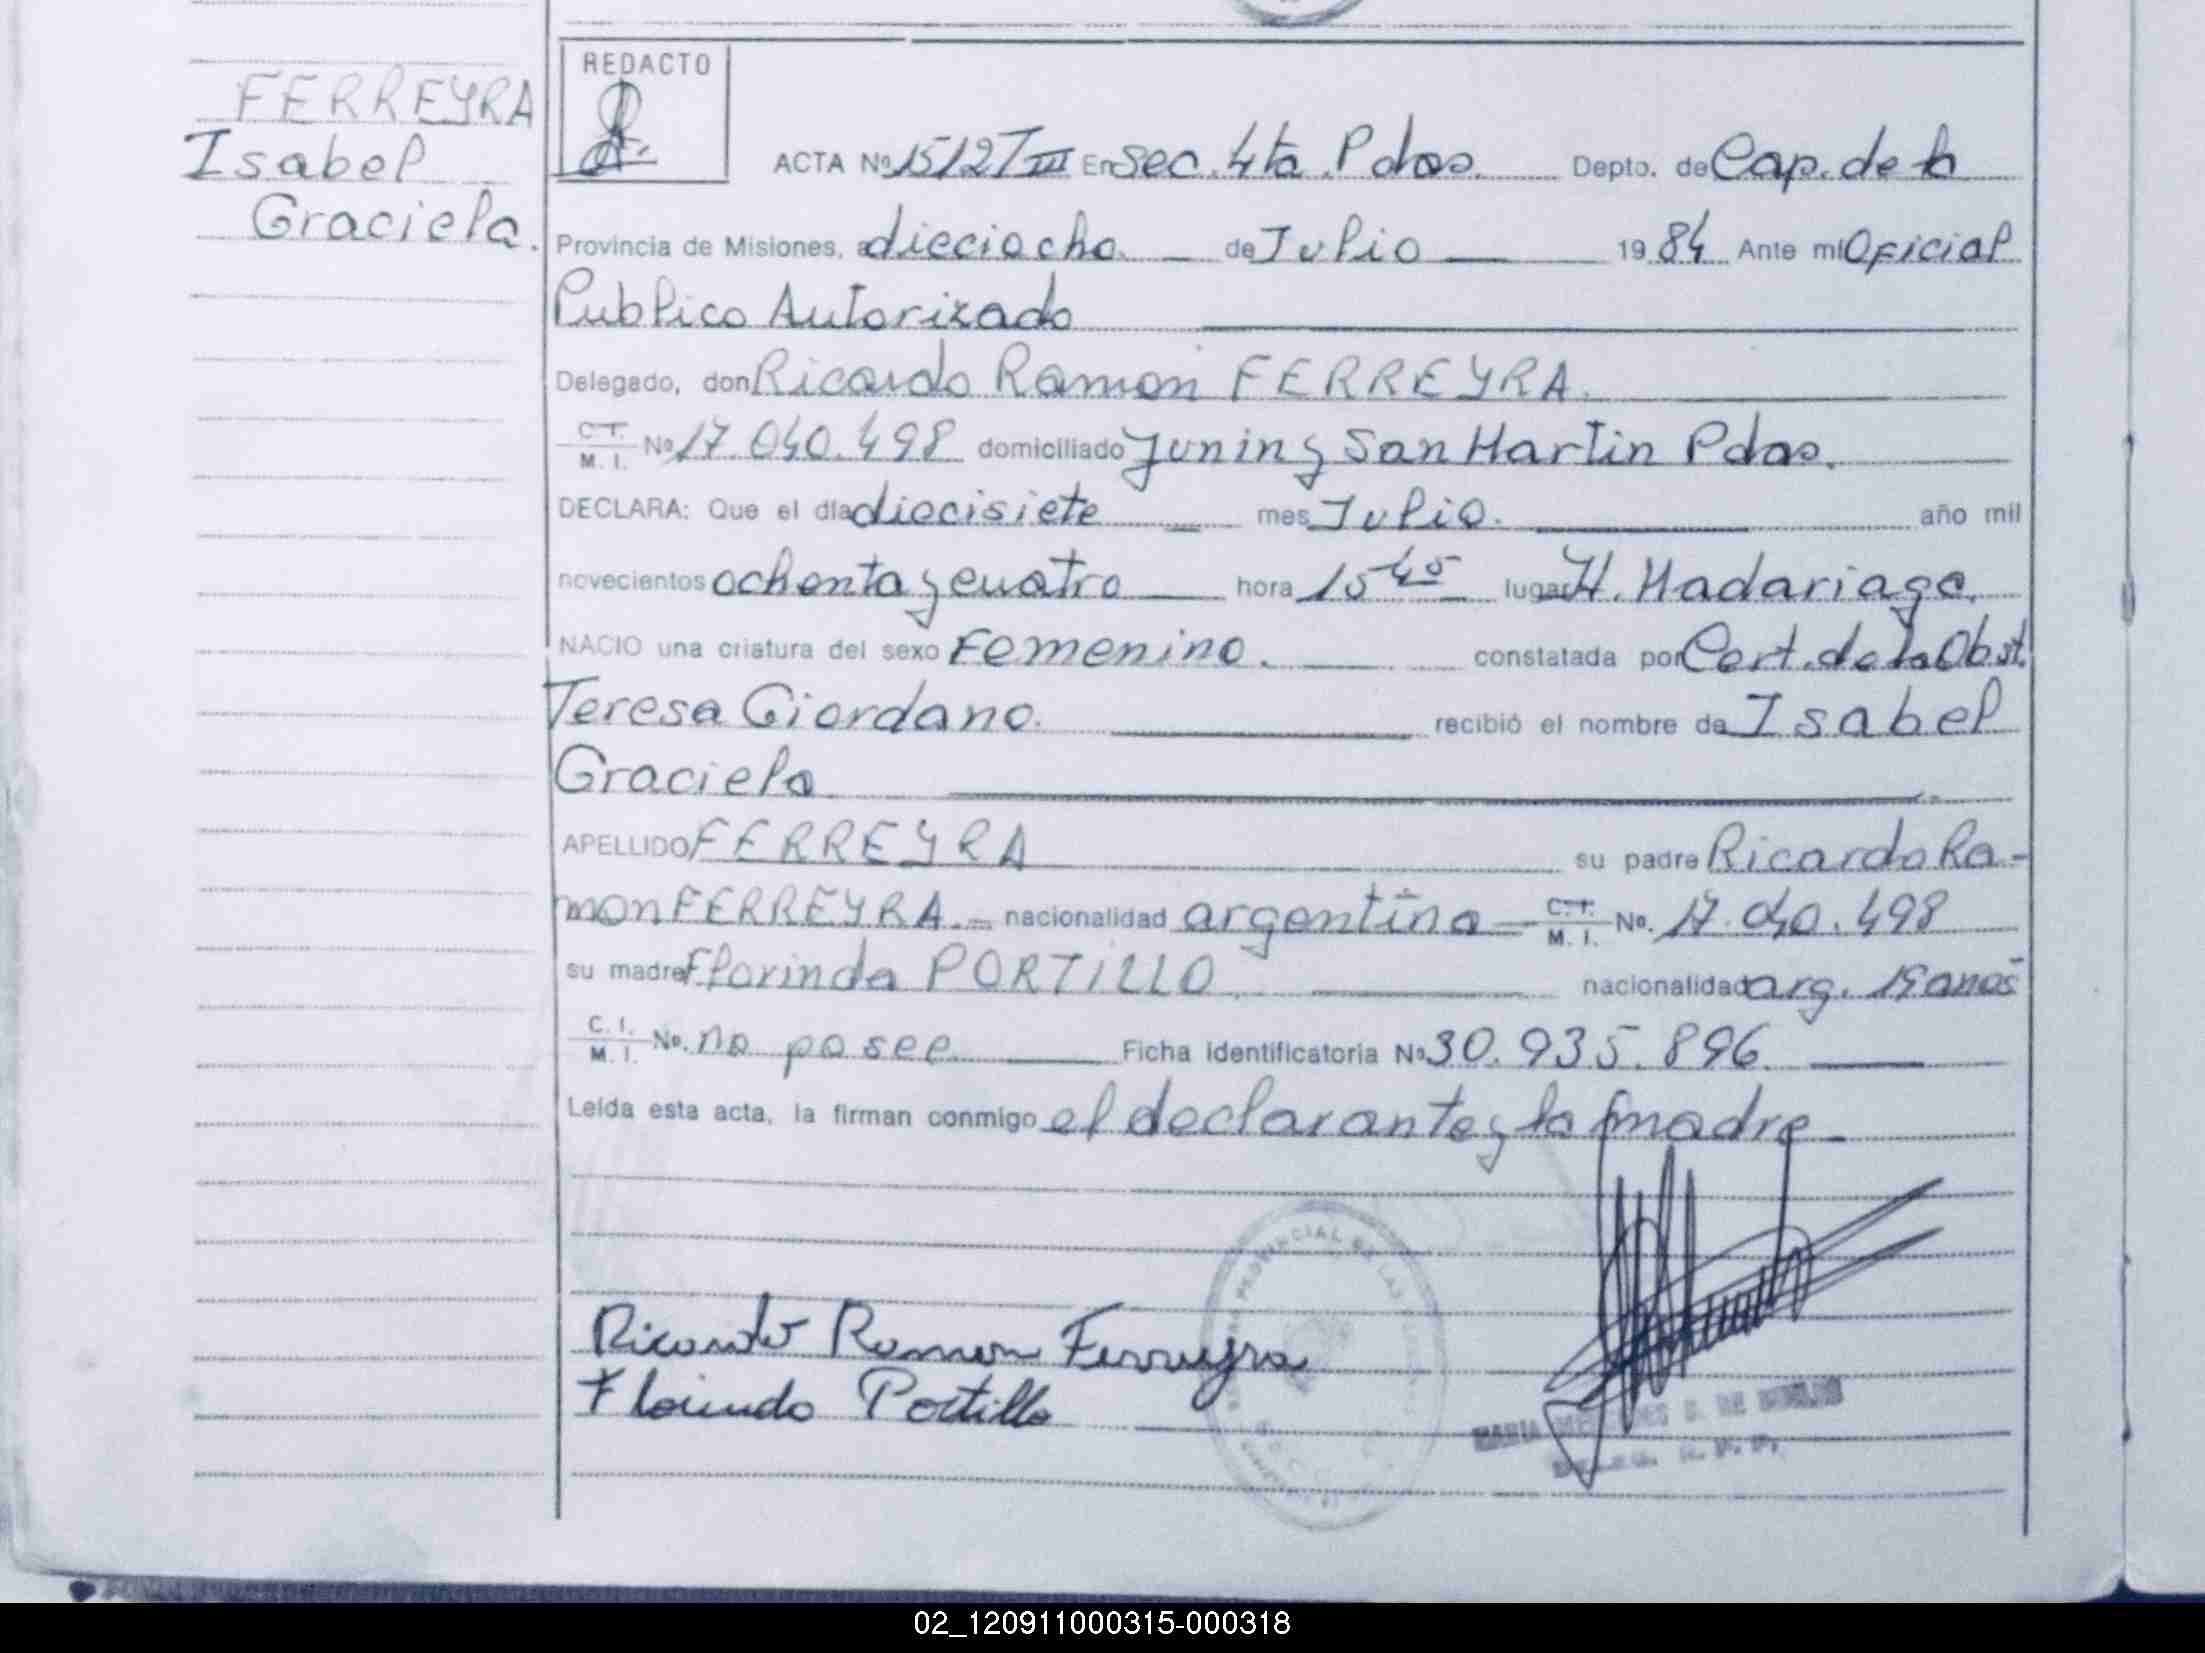 FERREYRA
Isabel
Graciela.
REDACTO
ACTA Nº 1512 T III En Sec. 4ta. Pdas. Depto. de Cap. de la
Provincia de Misiones, a dieciocho de Julio 1984 Ante mi Oficial
Publico Autorizado
Delegado, don Ricardo Ramon FERREYRA.
C.I. M. I. Nº 17.040.498 domiciliado Junin y San Martin Pdas.
DECLARA: Que el día diecisiete mes Julio. año mil
novecientos ochenta y cuatro hora 15 45 lugar H. Madariaga.
NACIO una criatura del sexo Femenino. constatada por Cert. de la Obst.
Teresa Giordano. recibió el nombre de Isabel
Graciela
APELLIDO FERREYRA su padre Ricardo Ra-
mon FERREYRA. nacionalidad argentina C.I. M. I. No. 17.040.498
su madre Florinda PORTILLO nacionalidad arg. años
C. I. M. I. No. no posee Ficha Identificatoria Nº 30.935.896
Leída esta acta, la firman conmigo el declarante y la madre
PROVINCIAL DE LAS
Ricardo Ramon Ferreyra
Florinda Portillo
MARIA MERCEDES DE
02_120911000315-000318